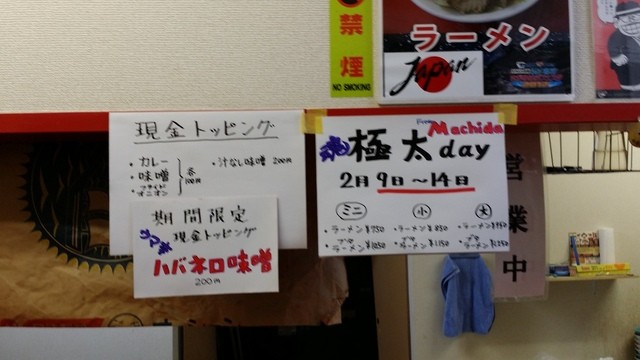 禁煙
NO SMOKING
ラーメン
Japan
現金トッピング
・カレー
・味噌
・フライドオニオン
各100円
・汁なし味噌 200円
期間限定
現金トッピング
ハバネロ味噌
200円
From Machida
極太day
2月9日〜14日
ミニ
・ラーメン¥750
小
・ラーメン¥850
ラーメン¥1150
大
・ラーメン
営業中